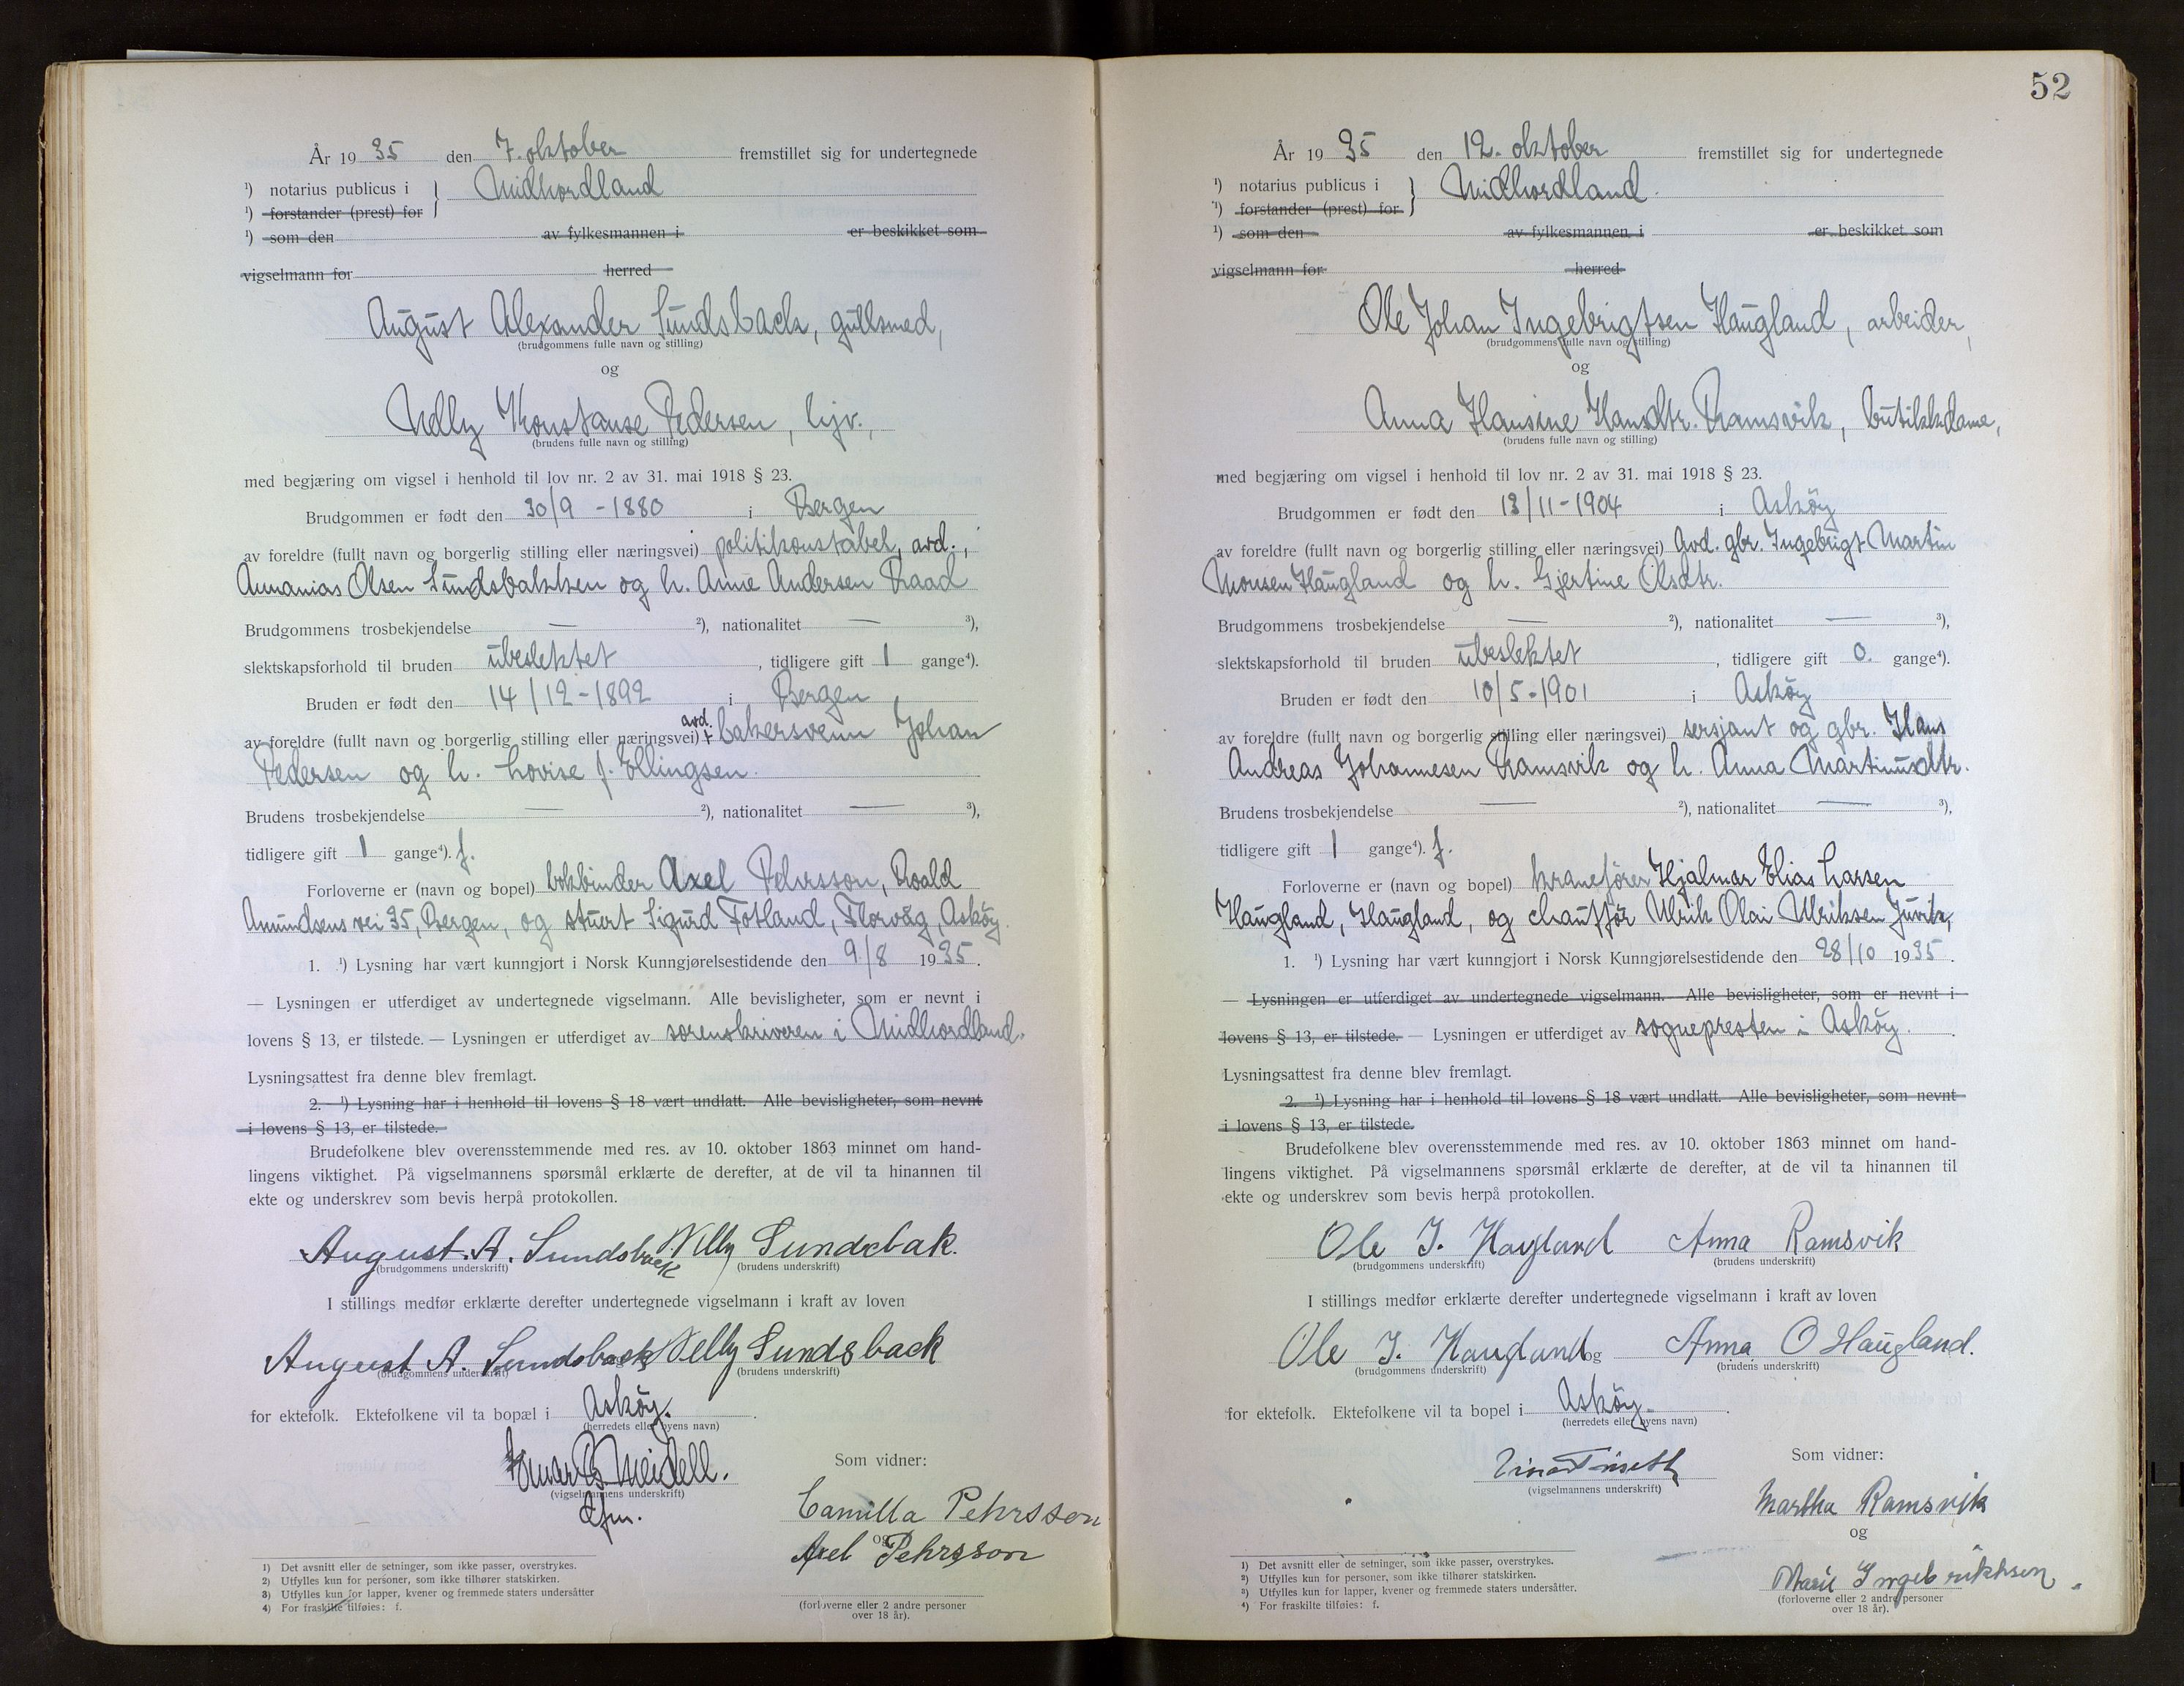 År 1935 den 7. oktober fremstillet sig for undertegnede
¹) notarius publicus i } Midhordland
¹) forstander (prest) for
¹) som den av fylkesmannen i er beskikket som
vigselmann for herred
August Alexander Sundsback, gullsmed,
(brudgommens fulle navn og stilling)
og
Nelly Konstanse Pedersen, hjv.,
(brudens fulle navn og stilling)
med begjæring om vigsel i henhold til lov nr. 2 av 31. mai 1918 § 23.
Brudgommen er født den 30/9 - 1880 i Bergen
av foreldre (fullt navn og borgerlig stilling eller næringsvei) politikonstabel, avd.,
Annanias Olsen Sundsbakken og h. Anne Andersen Raad
Brudgommens trosbekjendelse — ²), nationalitet — ³),
slektskapsforhold til bruden ubeslektet, tidligere gift 1 gange⁴).
Bruden er født den 14/12 - 1892 i Bergen
avd.
av foreldre (fullt navn og borgerlig stilling eller næringsvei) + bakersvenn Johan
Pedersen og h. Lovise f. Ellingsen.
Brudens trosbekjendelse — ²), nationalitet — ³),
tidligere gift 1 gange⁴). f.
Forloverne er (navn og bopel) bokbinder Axel Pehrsson, Roald
Amundsens vei 35, Bergen, og stuert Sigurd Fotland, Florvåg, Askøy.
1. ¹) Lysning har vært kunngjort i Norsk Kunngjørelsestidende den 9/8 1935.
— Lysningen er utferdiget av undertegnede vigselmann. Alle bevisligheter, som er nevnt i
lovens § 13, er tilstede. — Lysningen er utferdiget av sorenskriveren i Midhordland.
Lysningsattest fra denne blev fremlagt.
2. ¹) Lysning har i henhold til lovens § 18 vært undlatt. Alle bevisligheter, som nevnt
i lovens § 13, er tilstede.
Brudefolkene blev overensstemmende med res. av 10. oktober 1863 minnet om hand-
lingens viktighet. På vigselmannens spørsmål erklærte de derefter, at de vil ta hinannen til
ekte og underskrev som bevis herpå protokollen.
August. A. Sundsback Nelly Sundsbak.
(brudgommens underskrift) (brudens underskrift)
I stillings medfør erklærte derefter undertegnede vigselmann i kraft av loven
August A. Sundsback Nelly Sundsback
(brudgommens underskrift) (brudens underskrift)
for ektefolk. Ektefolkene vil ta bopæl i Askøy.
(herredets eller byens navn)
Meidell.
(vigselmannens underskrift)
Som vidner:
Camilla Pehrsson
og
Axel Pehrsson
(forloverne eller 2 andre personer
over 18 år).
1) Det avsnitt eller de setninger, som ikke passer, overstrykes.
2) Utfylles kun for personer, som ikke tilhører statskirken.
3) Utfylles kun for lapper, kvener og fremmede staters undersåtter
4) For fraskilte tilføies: f.
52
År 1935 den 12. oktober fremstillet sig for undertegnede
¹) notarius publicus i } Midhordland.
¹) forstander (prest) for
¹) som den av fylkesmannen i er beskikket som
vigselmann for herred
Ole Johan Ingebrigtsen Haugland, arbeider,
(brudgommens fulle navn og stilling)
og
Anna Hansine Hansdtr. Ramsvik, butikkdame,
(brudens fulle navn og stilling)
med begjæring om vigsel i henhold til lov nr. 2 av 31. mai 1918 § 23.
Brudgommen er født den 13/11 - 1904 i Askøy
av foreldre (fullt navn og borgerlig stilling eller næringsvei) Avd. gbr. Ingebrigt Martin
Monsen Haugland og h. Gjertine Olsdtr.
Brudgommens trosbekjendelse — ²), nationalitet — ³),
slektskapsforhold til bruden ubeslektet, tidligere gift 0. gange⁴).
Bruden er født den 10/5 - 1901 i Askøy
av foreldre (fullt navn og borgerlig stilling eller næringsvei) sersjant og gbr. Hans
Andreas Johannesen Ramsvik og h. Anna Martinusdtr.
Brudens trosbekjendelse — ²), nationalitet — ³),
tidligere gift 1 gange⁴). f.
Forloverne er (navn og bopel) kranefører Hjalmar Elias Larsen
Haugland, Haugland, og chauffør Ulrik Olai Ulriksen Juvik,
1. ¹) Lysning har vært kunngjort i Norsk Kunngjørelsestidende den 28/10 1935.
— Lysningen er utferdiget av undertegnede vigselmann. Alle bevisligheter, som er nevnt i
lovens § 13, er tilstede. — Lysningen er utferdiget av sognepresten i Askøy.
Lysningsattest fra denne blev fremlagt.
2. ¹) Lysning har i henhold til lovens § 18 vært undlatt. Alle bevisligheter, som nevnt
i lovens § 13, er tilstede.
Brudefolkene blev overensstemmende med res. av 10. oktober 1863 minnet om hand-
lingens viktighet. På vigselmannens spørsmål erklærte de derefter, at de vil ta hinannen til
ekte og underskrev som bevis herpå protokollen.
Ole I. Haugland Anna Ramsvik
(brudgommens underskrift) (brudens underskrift)
I stillings medfør erklærte derefter undertegnede vigselmann i kraft av loven
Ole I. Haugland og Anna O Haugland.
(brudgommens underskrift) (brudens underskrift)
for ektefolk. Ektefolkene vil ta bopel i Askøy.
(herredets eller byens navn)
(vigselmannens underskrift)
Som vidner:
Martha Ramsvik
og
Marie Ingebrikhsen.
(forloverne eller 2 andre personer
over 18 år).
1) Det avsnitt eller de setninger, som ikke passer, overstrykes.
2) Utfylles kun for personer, som ikke tilhører statskirken.
3) Utfylles kun for lapper, kvener og fremmede staters undersåtter.
4) For fraskilte tilføies: f.